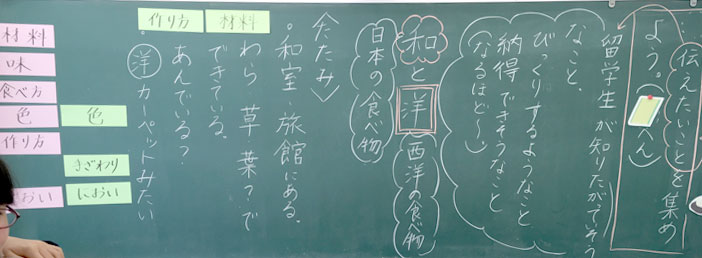 伝えたいことを集め
よう。
留学生が知りたがっていそう
なこと、
びっくりするようなこと
納得できそうなこと
(なるほど〜)
和と洋
西洋の食べ物
日本の食べ物
〈たたみ〉
。和室・旅館にある。
わら?草?葉?で
できている。
あんでいる?
。洋カーペットみたい
材料
作り方
色
手ざわり
におい
材料
味
食べ方
色
作り方
におい